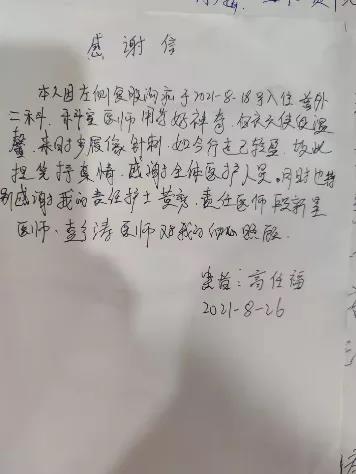 感谢信
本人因左侧复股沟疝于2021-8-18号入住普外
二科,科室医师用药好神奇,白衣天使似温
馨,来时步履像针刺,如今行走已轻盈,故此
提笔抒真情,感谢全体医护人员。同时也特
别感谢我的责任护士黄,责任医师段新星
医师、查涛医师对我的细心照顾。
患者:高任福
2021-8-26